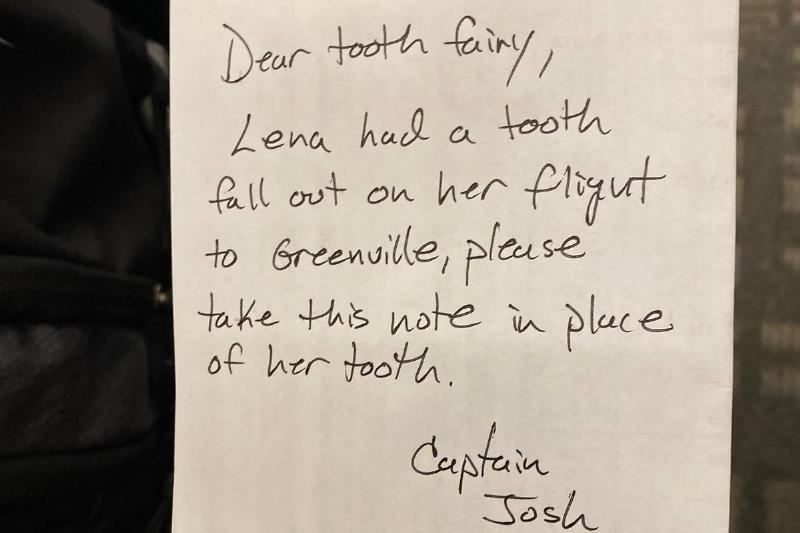 Dear tooth fairy,
Lena had a tooth
fall out on her flight
to Greenville, please
take this note in place
of her tooth.
Captain
Josh